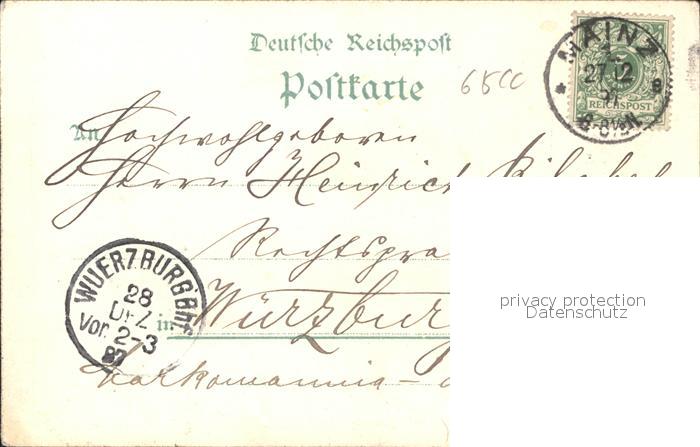 Deutsche Reichspost
Postkarte
6500
MAINZ
27 12
REICHSPOST
An Hochwohlgeboren
Herrn Heinrich
Rechtspra
WUERZBURG Bhf
28
DEZ
Vor. 2-3
97
in Würzburg
Markomannia -
privacy protection
Datenschutz